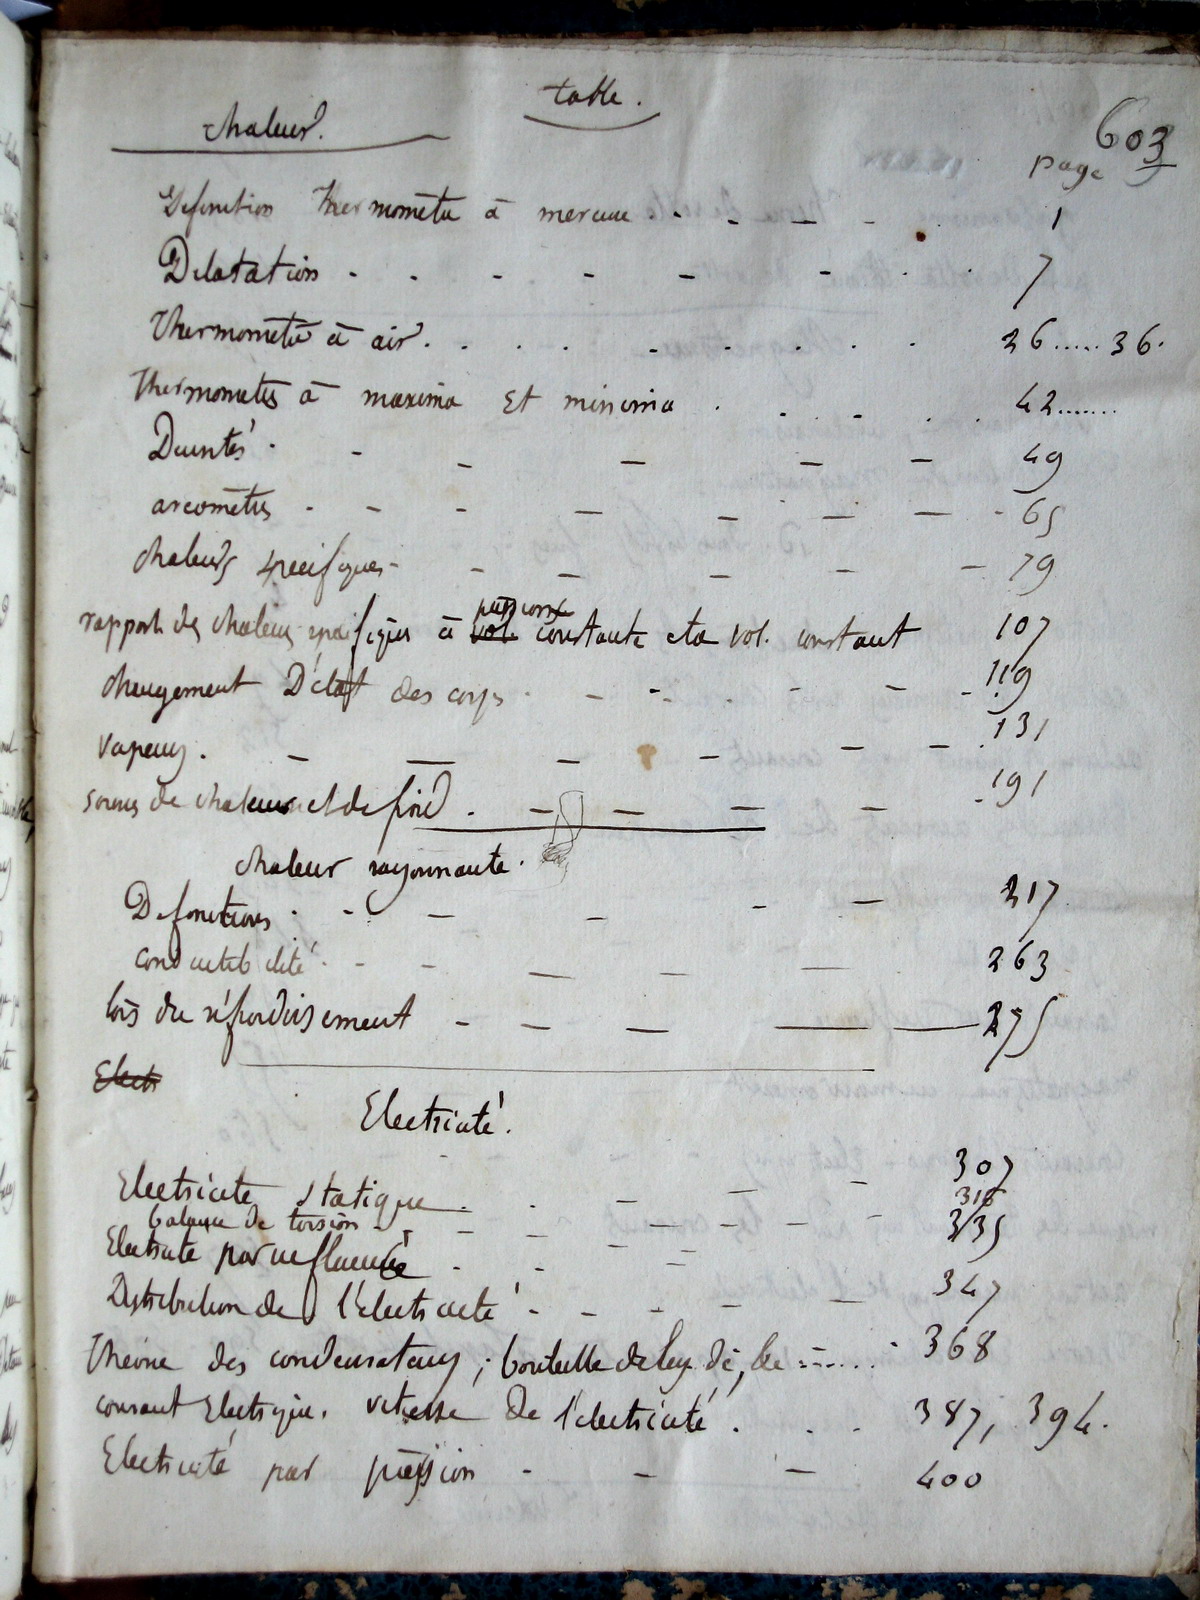 table.
603
chaleur.
page
Definition thermomètre à mercure - - - - 1
Dilatation - - - - - - - 7
Thermomètre à air . . . . . . . . 26.....36.
thermomètres à maxima et minima . . . . . 42.......
Densités - - - - - - 49
areomètres - - - - - - - - 65
chaleurs spécifiques - - - - - - 79
rapport des chaleurs spécifiques à vol. pression constante et a vol. constant 107
changement D'état des corps - - - - - - 119
vapeurs . - - - - - - 131
sources de chaleur et de froid . - - - - 191
chaleur rayonnante.
Definitions - - - - - - 217
conductibilité - - - - - - 263
lois du réfroidissement - - - - - 275
Electr
Electricité.
Electricité statique . . - - - 307
balance de torsion - - - - - - 316
Electricité par influence . - - - 335
Distribution de l'électricité - - - - - 347
théorie des condensateurs ; bouteille de leyde, &c ...... 368
courant Electrique. vitesse de l'électricité . . . 387, 394.
Electricité par pression - - - 400